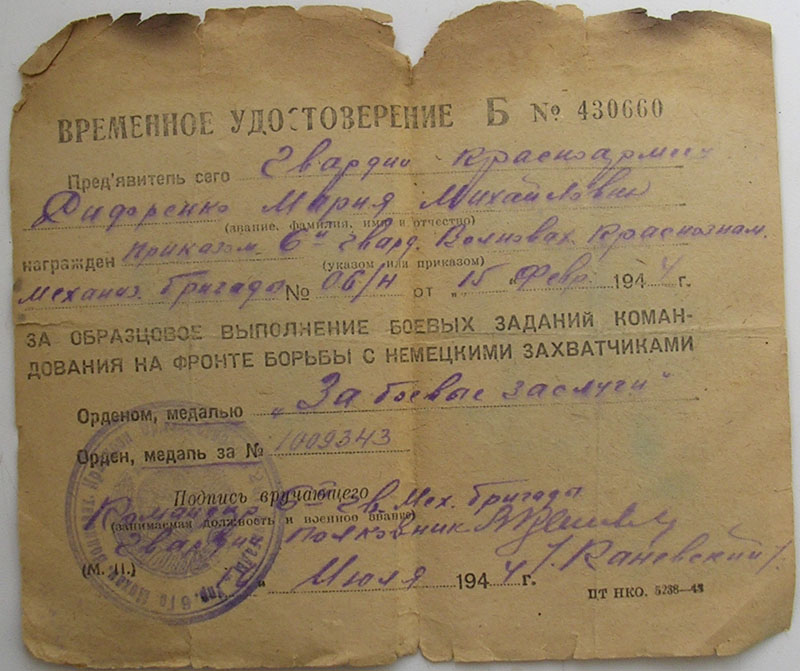 ВРЕМЕННОЕ УДОСТОВЕРЕНИЕ Б № 430660
Пред'явитель сего Гвардии красноармеец
Дифоренко Мария Михайловна
(звание, фамилия, имя и отчество)
награжден приказом 6й Гвард. Волновах. Краснознам.
(указом или приказом)
механиз. бригады № 06/н от „15 „ Февр. 1944 г.
ЗА ОБРАЗЦОВОЕ ВЫПОЛНЕНИЕ БОЕВЫХ ЗАДАНИЙ КОМАН-
ДОВАНИЯ НА ФРОНТЕ БОРЬБЫ С НЕМЕЦКИМИ ЗАХВАТЧИКАМИ
Орденом, медалью „За боевые заслуги"
Орден, медаль за № 1009343
Подпись вручающего
Командир 6й Гв. Мех. бригады
(занимаемая должность и военное звание)
Гвардии полковник /Каневский/
(М. П.) Июля 1944 г.
ЦТ НКО. 5238—43